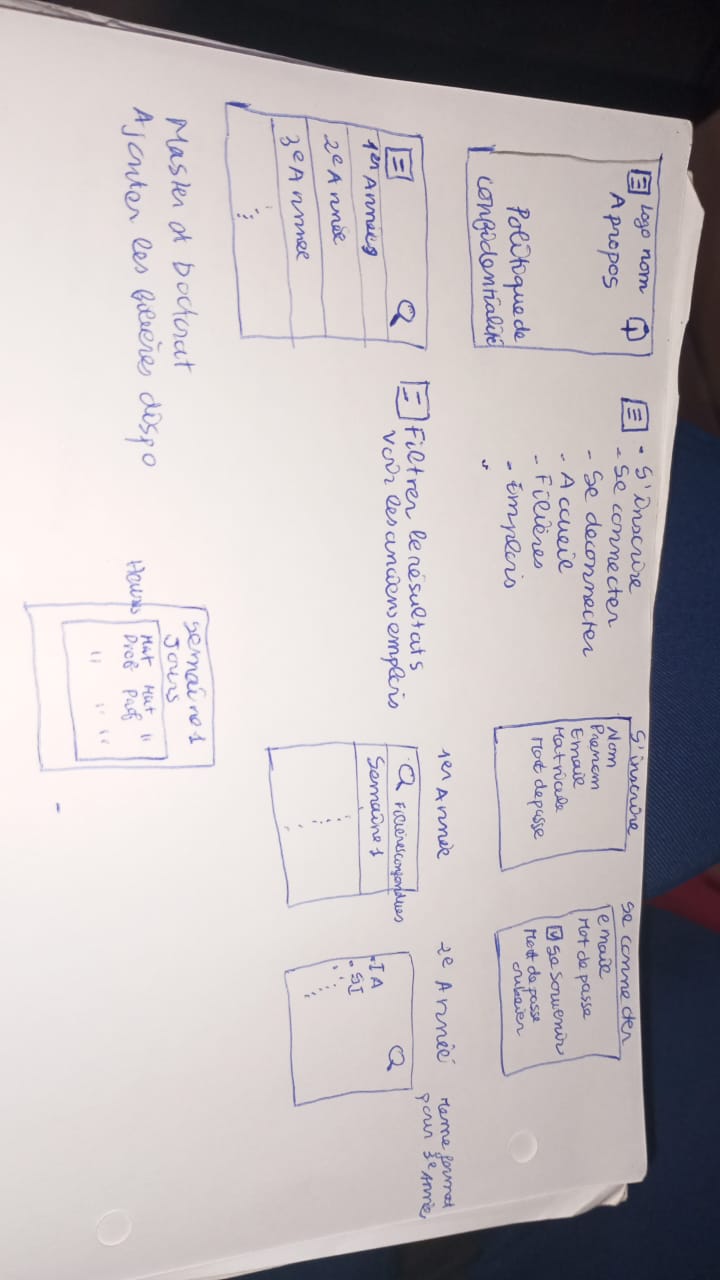 Logo nom
A propos
Politique de
confidentialité
• S'inscrire
- Se connecter
- Se deconnecter
- Accueil
- Filières
- Emplois
S'inscrire
Nom
Prenom
Email
Matricule
Mot de passe
Se connecter
email
Mot de passe
Se souvenir
Mot de passe
oublier
1er Années
2e Année
3e Année
Filtrer le résultats
Voir les anciens emplois
1er Année
Filières confondues
Semaine 1
2e Année
• IA
• SI
Meme format
pour 3e Année
Master et Doctorat
Ajouter les filières dispo
Semaine 1
Jours
Heures
Mat Mat "
Prof Prof "
" " "